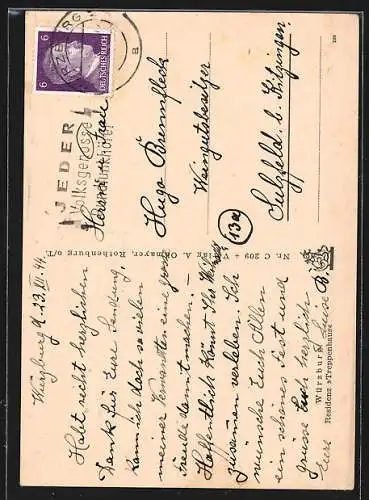 Würzburg d. 13. XII. 44
Habt recht herzlichen
Dank für Eure Sendung,
kann ich doch so vielen
meiner Verwandten eine gr.
Freude damit machen. –
Hoffentlich könnt Ihr
zusammen verleben. Ich
wünsche Euch Allen
ein schönes Fest und
grüsse Euch herzlich
Eure Luise B.
Würzburg
Residenz »Treppenhaus«
Nr. C 209 + Verlag A. Ohmayer, Rothenburg o/T.
JEDER
Volksgenosse
Rundfunkhörer
6
DEUTSCHES REICH
6
a
Herrn u. Frau
Hugo Brennfleck
Weingutsbesitzer
13a
Sulzfeld b. Kitzingen